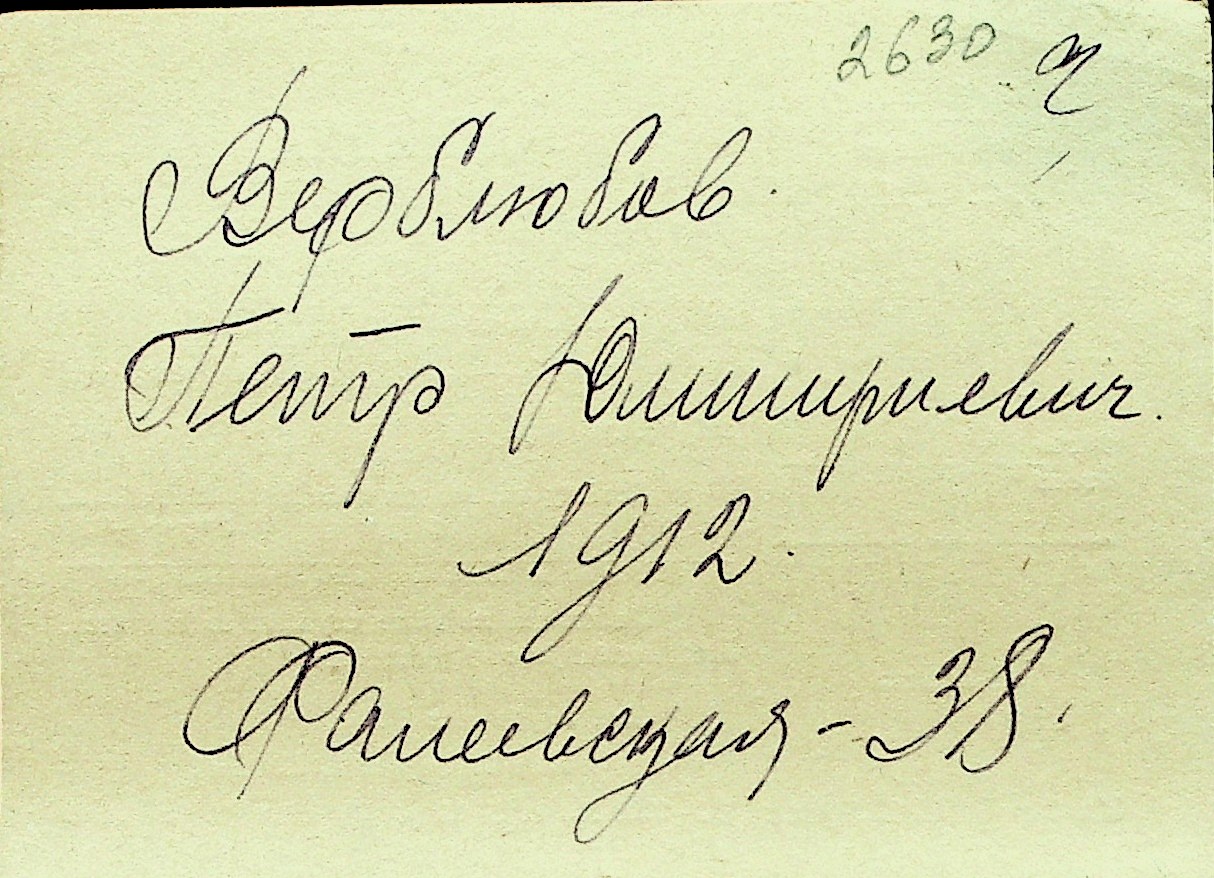 2630
Верблюбов.
Петр Дмитриевич.
1912.
Фалеевская - 38.